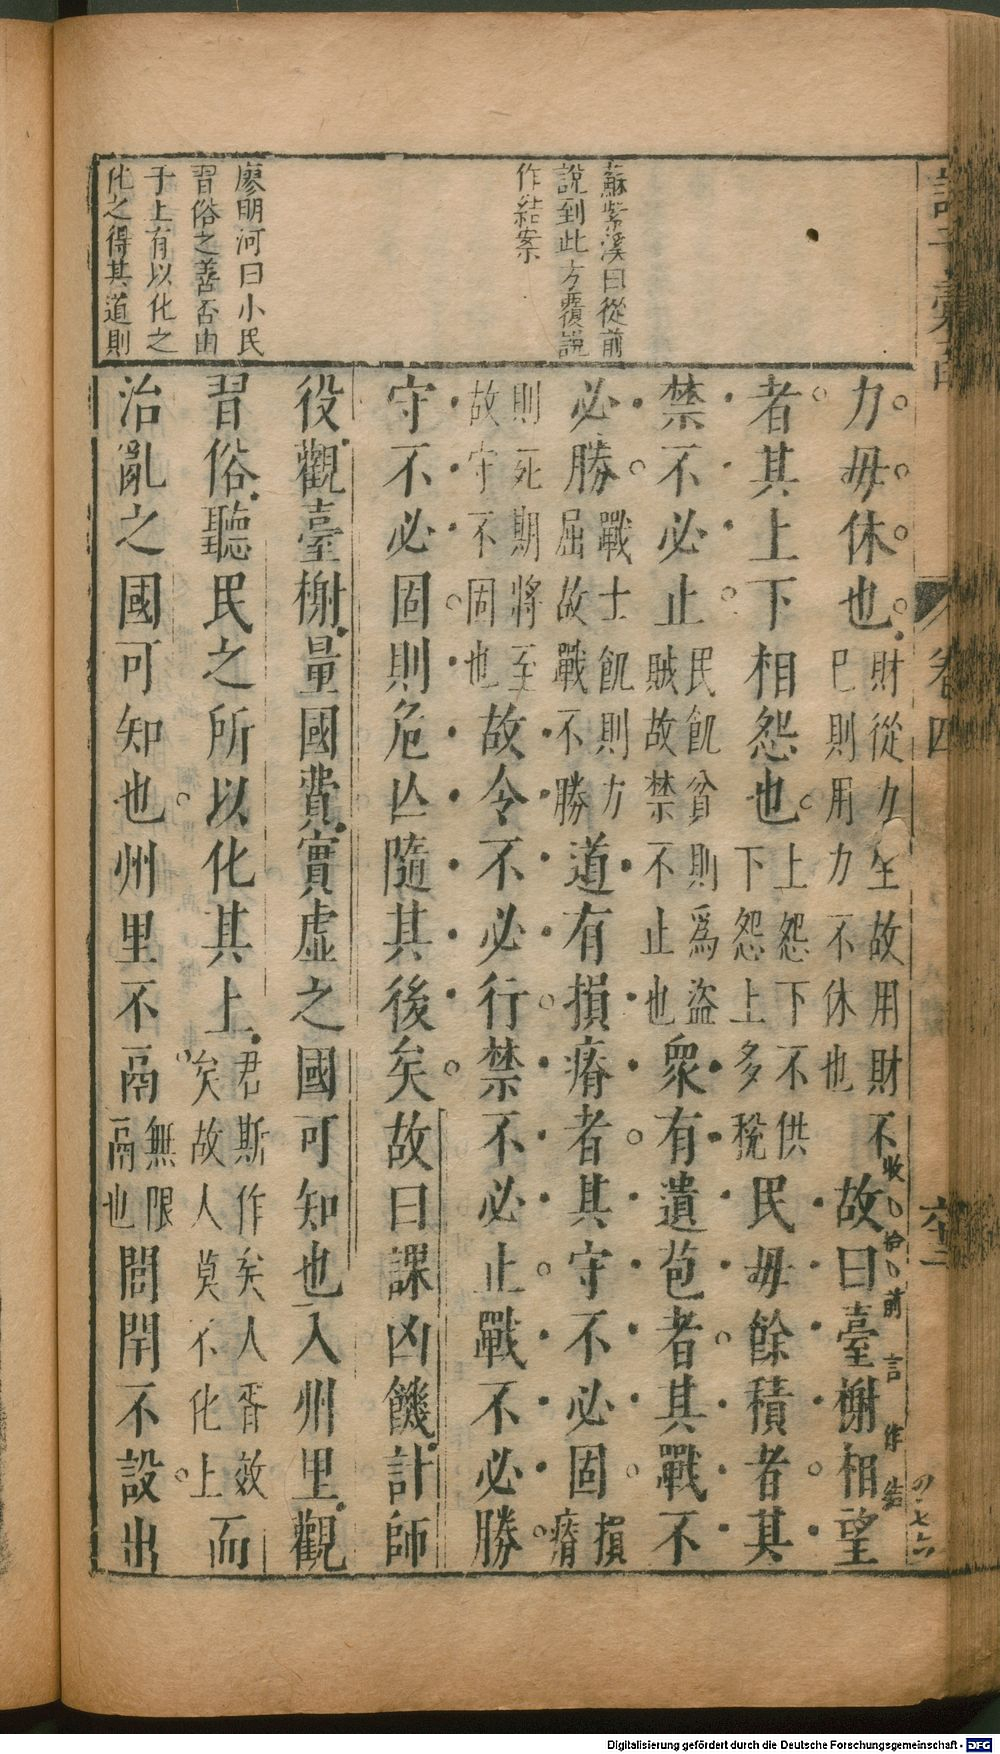 蘇紫溪曰從前
說到此方覆說
作結案
廖明河曰小民
習俗之善否由
于上有以化之
化之得其道則
力毋休也財從力生故用財不已則用力不休也故曰臺榭相望
者其上下相怨也上怨下不供下怨上多稅民毋餘積者其
禁不必止民飢貧則為盜賊故禁不止也眾有遺苞者其戰不
必勝戰士飢則力屈故戰不勝道有損瘠者其守不必固損瘠
則死期將至故守不固也故令不必行禁不必止戰不必勝
守不必固則危亾隨其後矣故曰課凶饑計師
役觀臺榭量國費實虛之國可知也入州里觀
習俗聽民之所以化其上君斯作矣人胥效矣故人莫不化上而
治亂之國可知也州里不鬲無限鬲也閭閈不設出
卷四
收拾前言作結
六十二
Digitalisierung gefördert durch die Deutsche Forschungsgemeinschaft - DFG